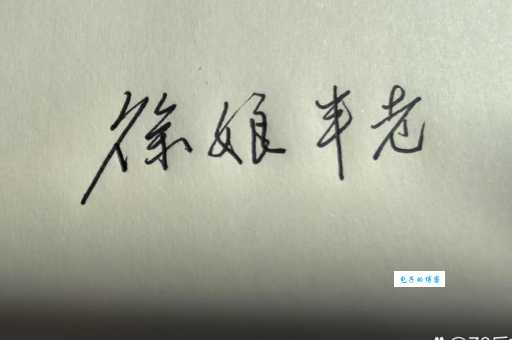 徐娘半老